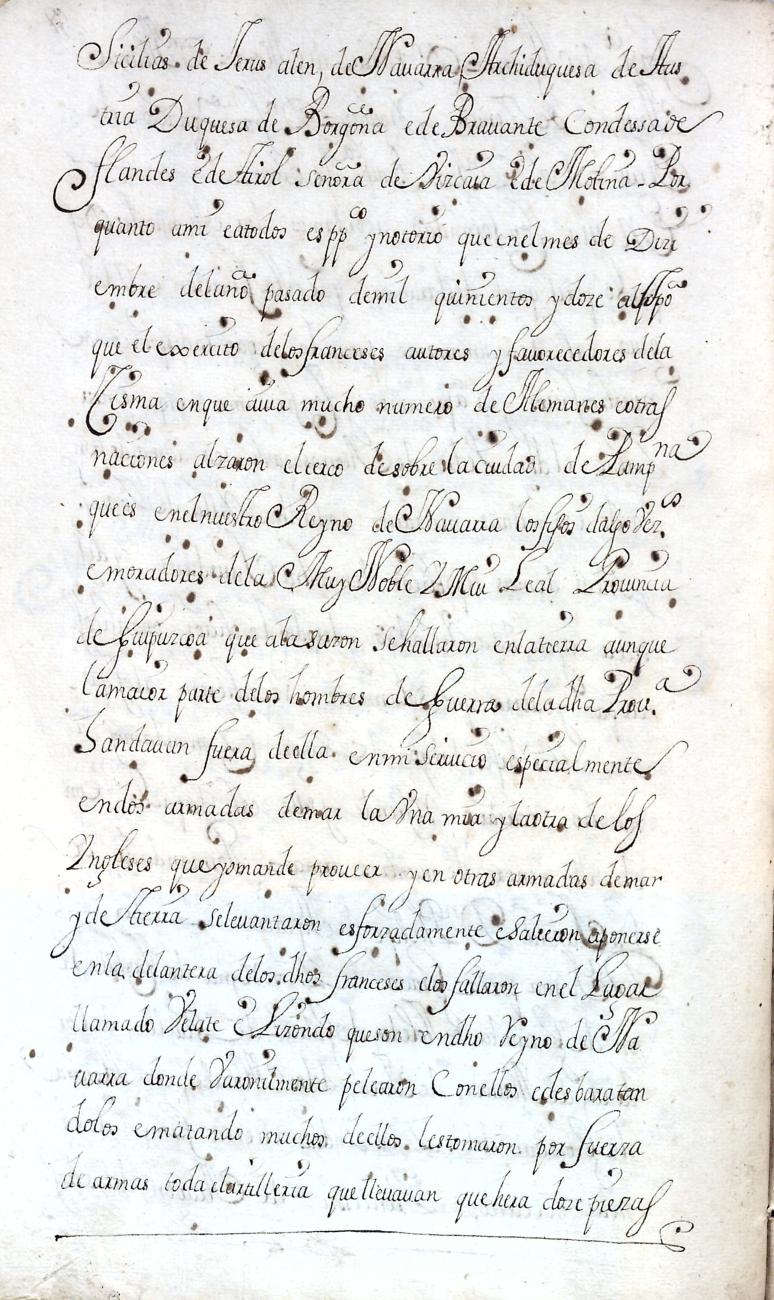 Sicilias de Jerus alen, de Nauarra, Archiduquesa de Aus
tria Duquesa de Borgoña e de Brauante Condessa de
flandes e de tirol señora de Vizcaia e de Molina - Por
quanto ami e atodos es ppco y notorio que en el mes de Dizi
embre del año pasado de mil quinientos y doze al tpo
que el exercito de los franceses autores y fauorecedores de la
Cisma en que auia mucho numero de Alemanes e otras
naciones alzaron el cerco de sobre la ciudad de Pampna
que es en el nuestro Reyno de Nauarra los fijos dalgo vezos
e moradores de la Muy Noble e Mui Leal Prouincia
de Guipuzcoa que ala sazon se hallaron en la tierra aunque
la maior parte de los hombres de Guerra de la dha Prou.a
handauan fuera de ella en mi seruicio especialmente
en dos armadas de mar la Vna mia y la otra de los
Yngleses que yo mande proueer y en otras armadas de mar
y de tierra se leuantaron esforzadamente e salieron a ponerse
en la delantera de los dhos franceses e los fallaron en el Lugar
llamado Velate e Lizondo que son en dho Reyno de Na
uarra donde Varonilmente pelearon Con ellos e desbaratan
dolos e matando muchos de ellos les tomaron por fuerza
de armas toda el artilleria que lleuauan que hera doze piezas